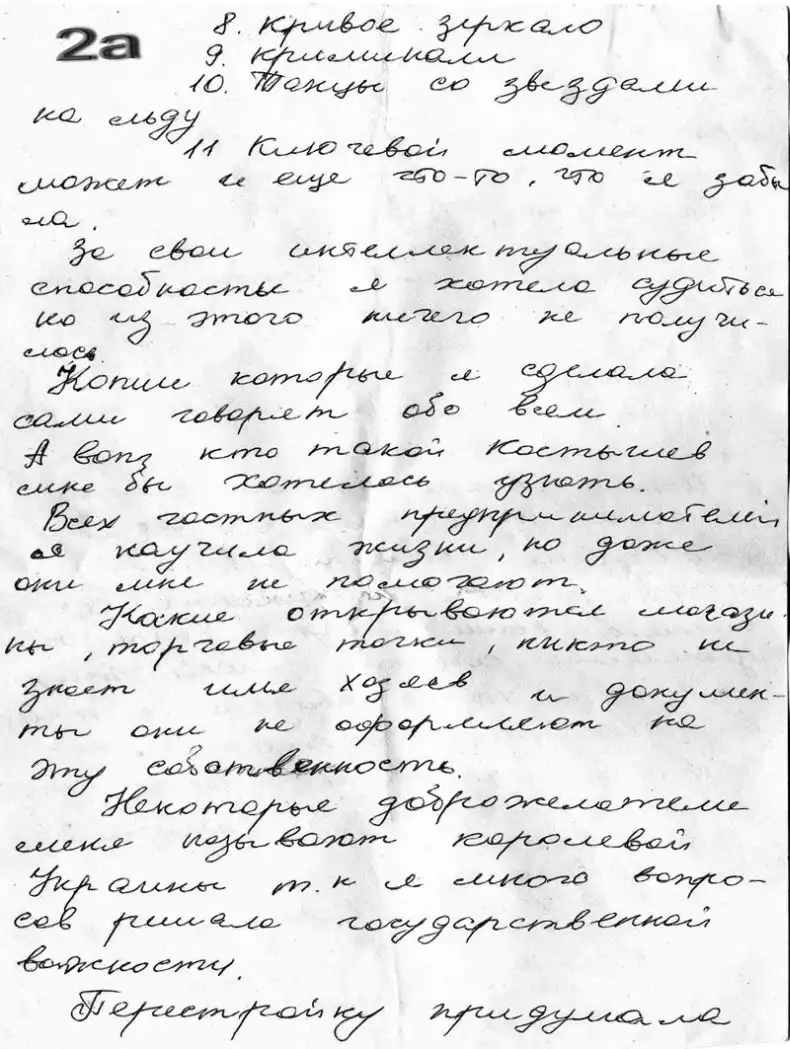 2а
8. Кривое зеркало
9. Криминал
10. Танцы со звездами
на льду
11 Ключевой момент
может и еще что-то, что я забы
ла.
За свои интеллектуальные
способности я хотела судиться
но из этого ничего не получи-
лось
Копии которые я сделала
сами говорят обо всем
А вот кто такой Костычев
мне бы хотелось узнать.
Всех частных предпринимателей
я научила жизни, но даже
они мне не помогают.
Какие открываются магази
ны, торговые точки, никто не
знает имя хозяев и докумен-
ты они не оформляют на
эту собственность.
Некоторые доброжелатели
меня называют королевой
Украины т.к я много вопро-
сов решала государственной
важности.
Перестройку придумала